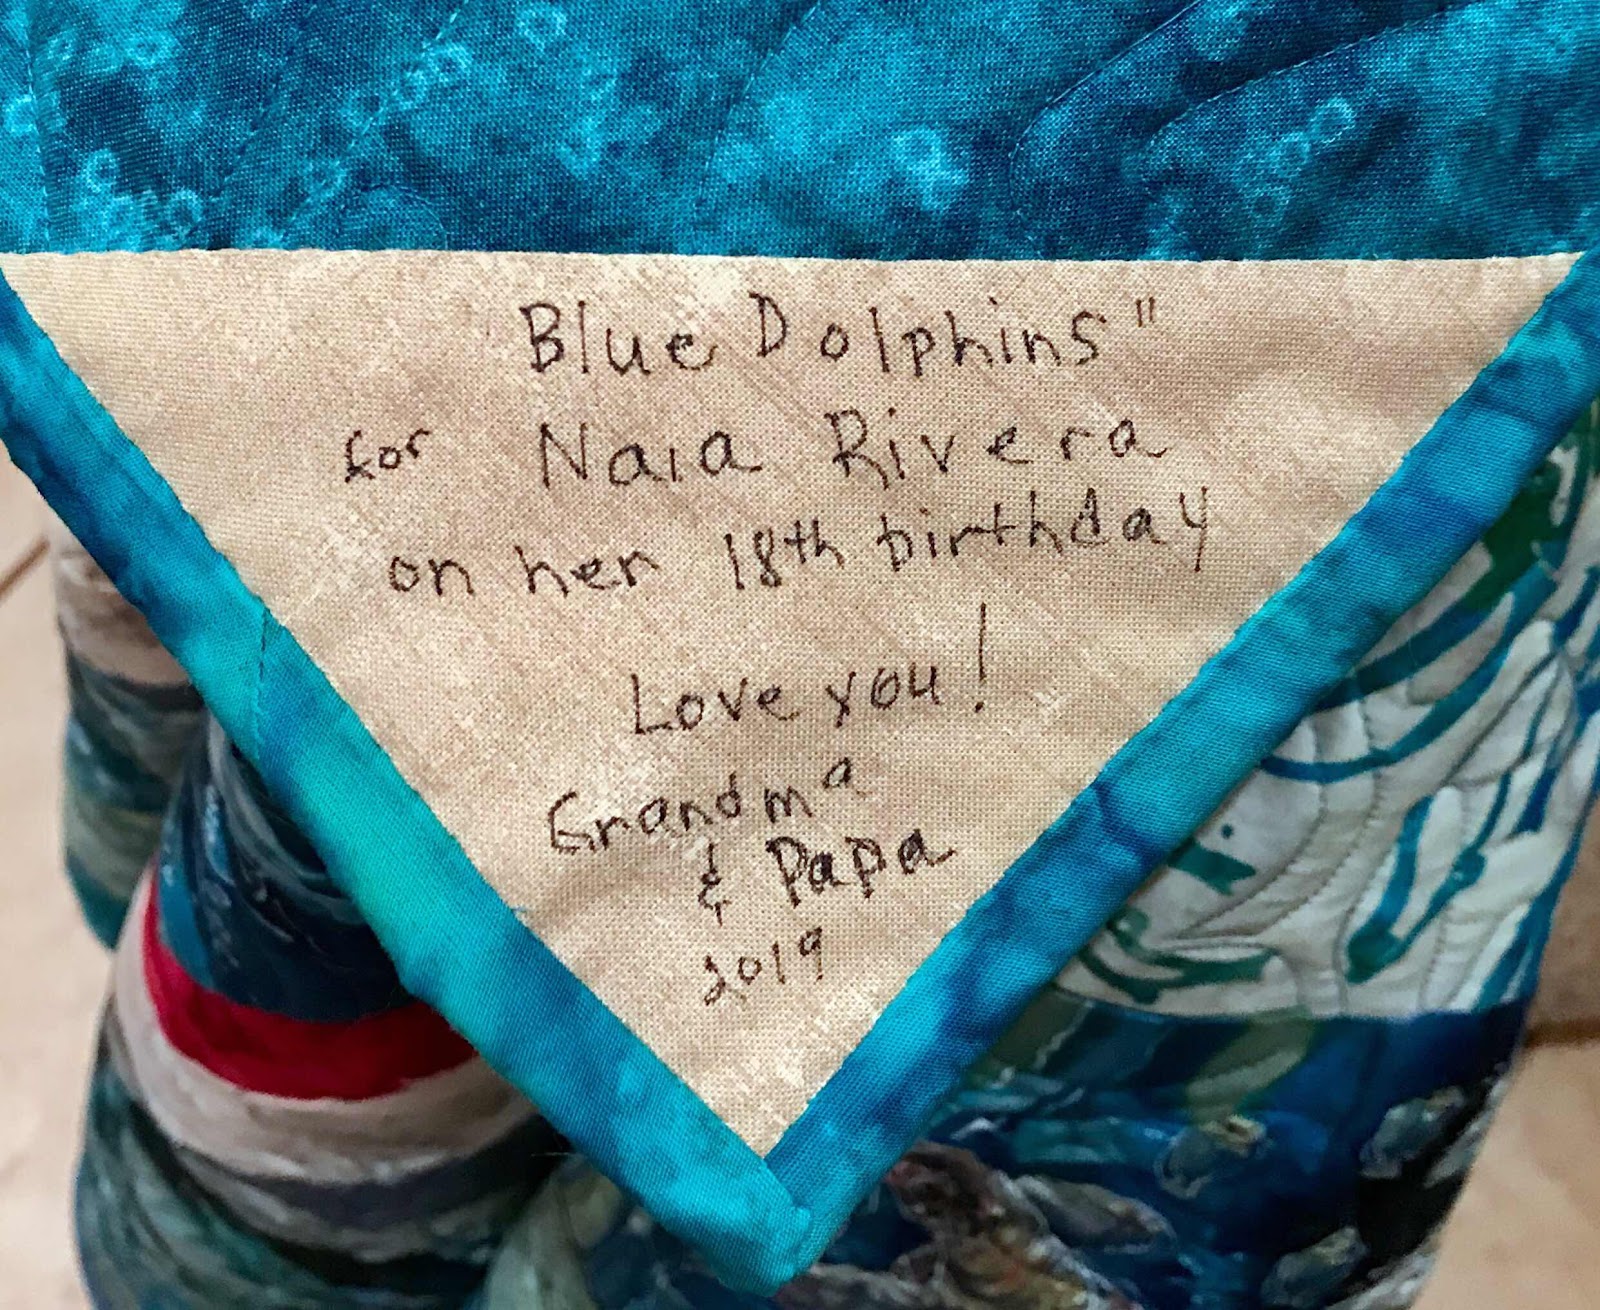 Blue Dolphins"
for Naia Rivera
on her 18th birthday
Love you!
Grandma
& Papa
2019